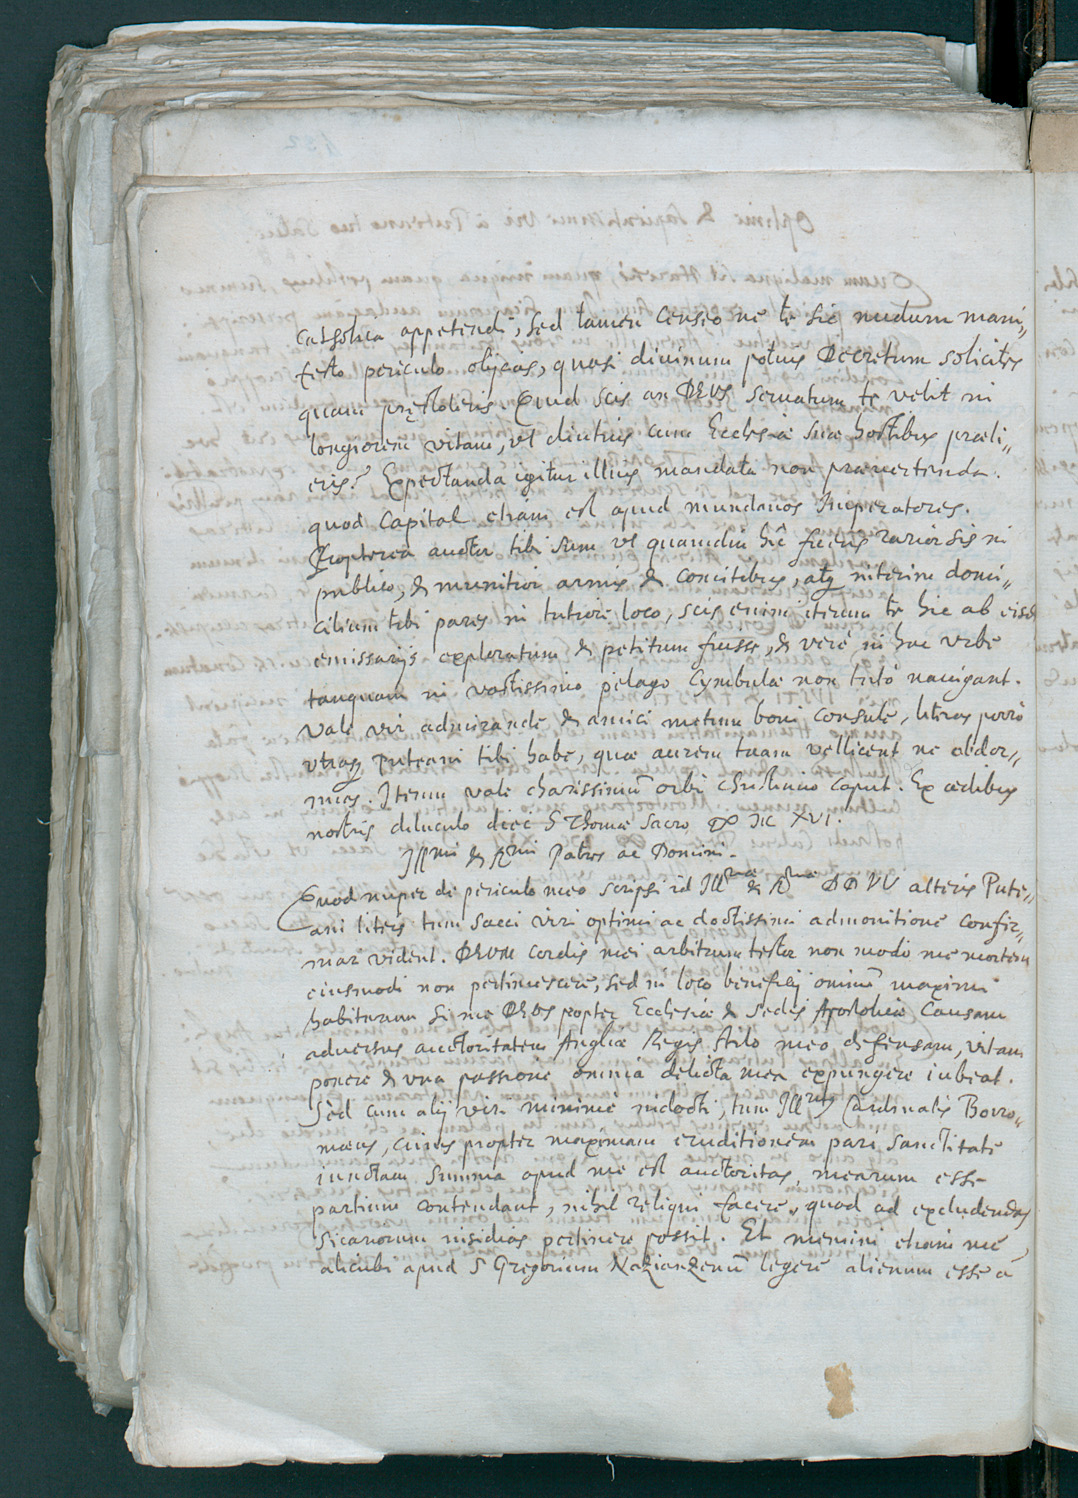 catholica appetendũ, sed tamen censeo ne te sic nudum mani„
festo periculo obijcias, quasi divinum potius Decretum solicites
quam pręstoleris. Quid scis an DEUS servatum te velit in
longiorem vitam, ut diutius cum Ecclesiæ suæ hostibus præli„
eris? Expectanda igitur illius mandata non prævertenda.
quod capital etiam est apud mundanos Imperatores.
Propterea auctor tibi sum ut quamdiu hîc fueris rarior sis in
publico, & munitior armis & comitibus, atq interim domi„
cilium tibi pares in tutiore loco, scis enim iterum te hic ab eisd
emissarijs exploratum & petitum fuisse, & verè in hac urbe
tanquam in vastissimo pelago cymbulæ non tutò navigant.
Vale vir admirande & amici metum boni consule, literas porrò
utrasq Puteani tibi habe, quæ aurem tuam vellicent ne obdor„
mias. Iterum vale charissimum orbi Christiano caput. Ex ædibus
nostris diluculo diei S Thomæ sacro
Illmi & Rmi Patres ac Domini.
Quod nuper de periculo meo scripsi id Illmæ & Rmæ DD VV alteris Pute„
ani literis tum Sacci viri optimi ac doctissimi admonitione confir„
mari vident. DEUM cordis mei arbitrum testor non modo me mortem
eiusmodi non pertimescere, sed in loco beneficij omniũ maximi
habiturum si me DEUS propter Ecclesiæ & Sedis Apostolicæ causam
adversus auctoritatem Angliæ Regis stilo meo defensam, vitam
ponere & una passione omnia delicta mea expungere iubeat.
Sed cum alij viri minimè indocti, tum Illmus Cardinalis Borro„
mæus, cuius propter maximam eruditionem pari sanctitate
iunctam summa apud me est auctoritas, mearum esse
partium contendant, nihil reliqui facere, quod ad excludendas
sicariorum insidias pertinere possit. Et memini etiam me
alicubi apud S Gregorium Nazianzenũ legere alienum esse à